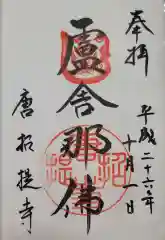 奉拝
平成二十六年
十月一日
盧舎那佛
唐招提寺